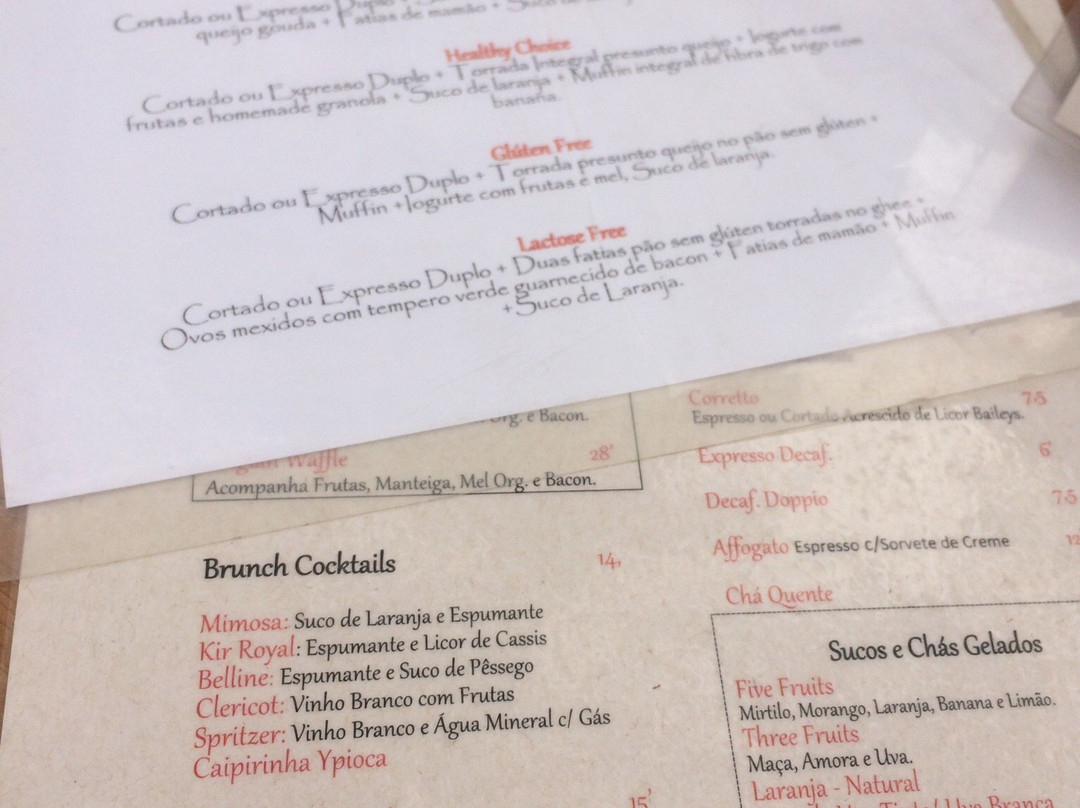 Cortado ou Expresso Duplo +
queijo gouda + Fatias de mamão +
Healthy Choice
Cortado ou Expresso Duplo + Torrada Integral presunto queijo + Iogurte com
frutas e homemade granola + Suco de laranja + Muffin integral de fibra de trigo com
banana.
Glúten Free
Cortado ou Expresso Duplo + Torrada presunto queijo no pão sem glúten +
Muffin +Iogurte com frutas e mel, Suco de laranja.
Lactose Free
Cortado ou Expresso Duplo + Duas fatias pão sem glúten torradas no ghee +
Ovos mexidos com tempero verde guarnecido de bacon + Fatias de mamão + Muffin
+Suco de Laranja.
Org. e Bacon.
Waffle 28'
Acompanha Frutas, Manteiga, Mel Org. e Bacon.
Brunch Cocktails 14,
Mimosa: Suco de Laranja e Espumante
Kir Royal: Espumante e Licor de Cassis
Belline: Espumante e Suco de Pêssego
Clericot: Vinho Branco com Frutas
Spritzer: Vinho Branco e Água Mineral c/ Gás
Caipirinha Ypioca
15'
Corretto 7,5
Espresso ou Cortado Acrescido de Licor Baileys.
Expresso Decaf. 6'
Decaf. Doppio 7,5
Affogato Espresso c/Sorvete de Creme 12
Chá Quente
Sucos e Chás Gelados
Five Fruits
Mirtilo, Morango, Laranja, Banana e Limão.
Three Fruits
Maça, Amora e Uva.
Laranja - Natural
Uva Branca